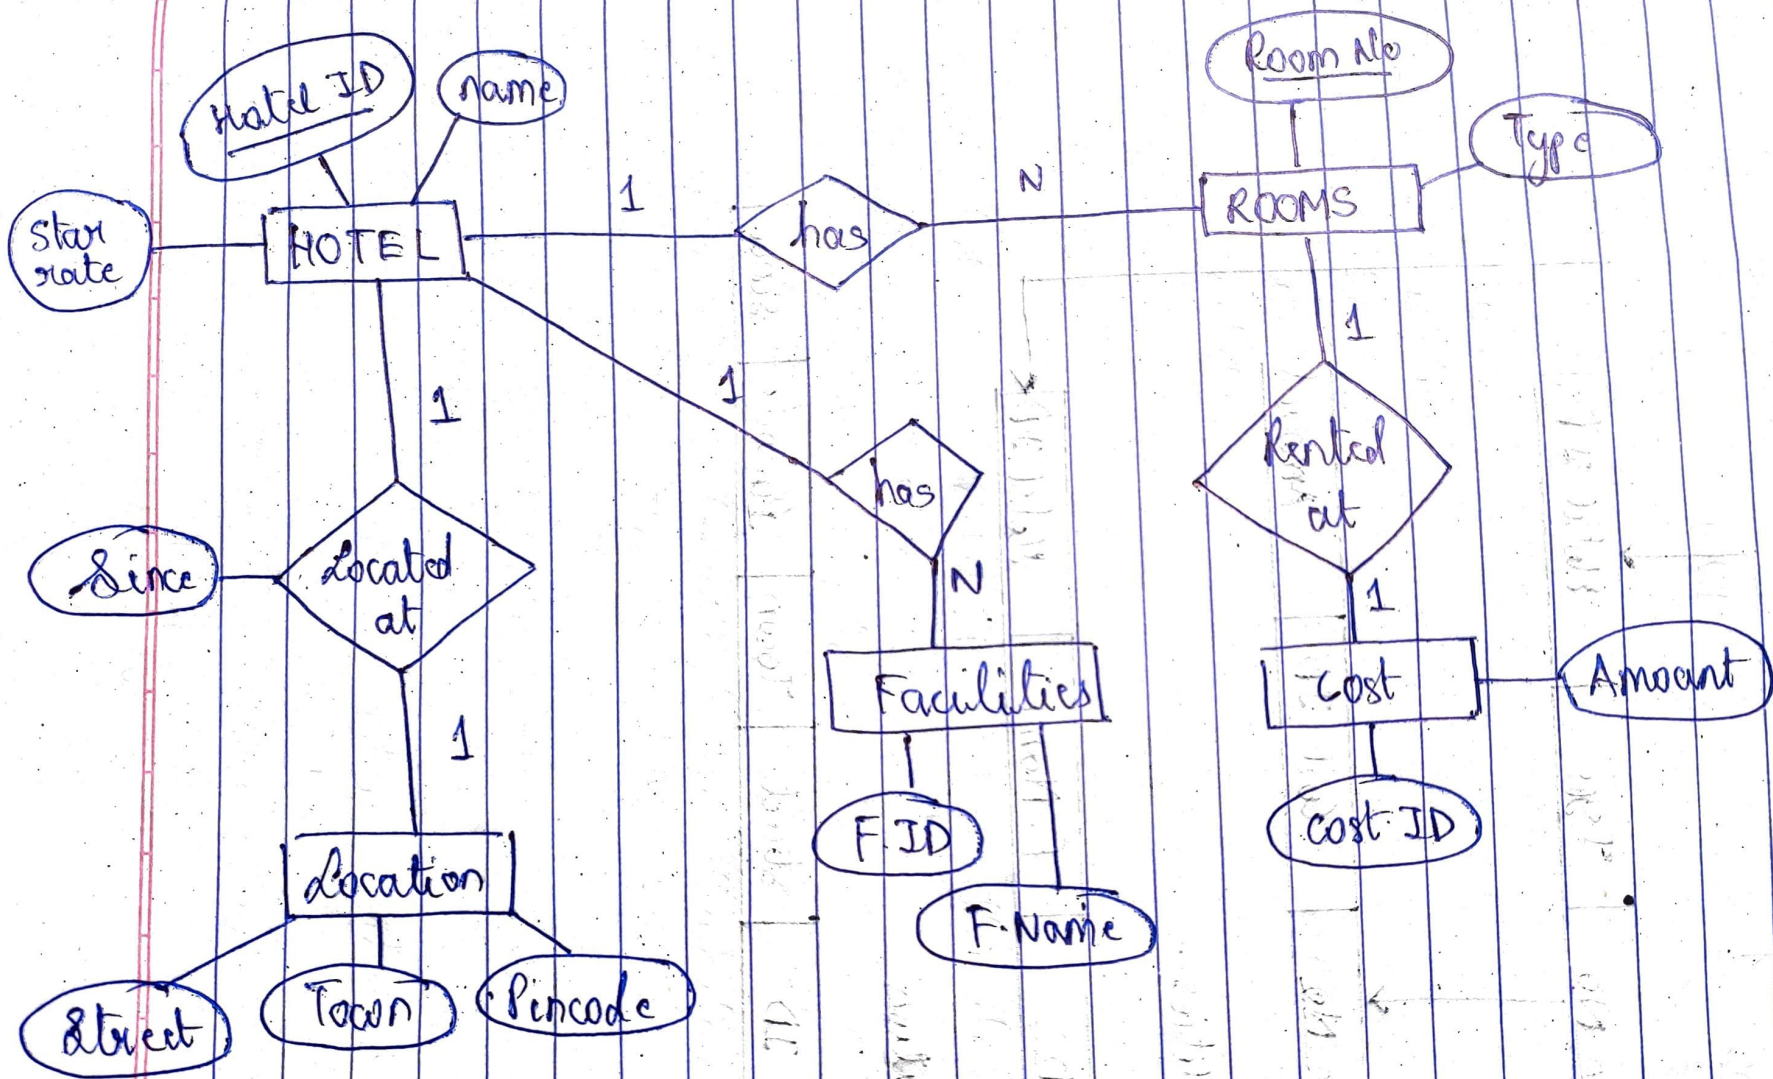 Room No
Hotel ID
name
Type
Star
rate
HOTEL
1
has
N
ROOMS
1
1
1
Rented
at
has
Since
Located
at
N
1
Facilities
Cost
Amount
1
F.ID
Cost ID
Location
F.Name
Street
Town
Pincode